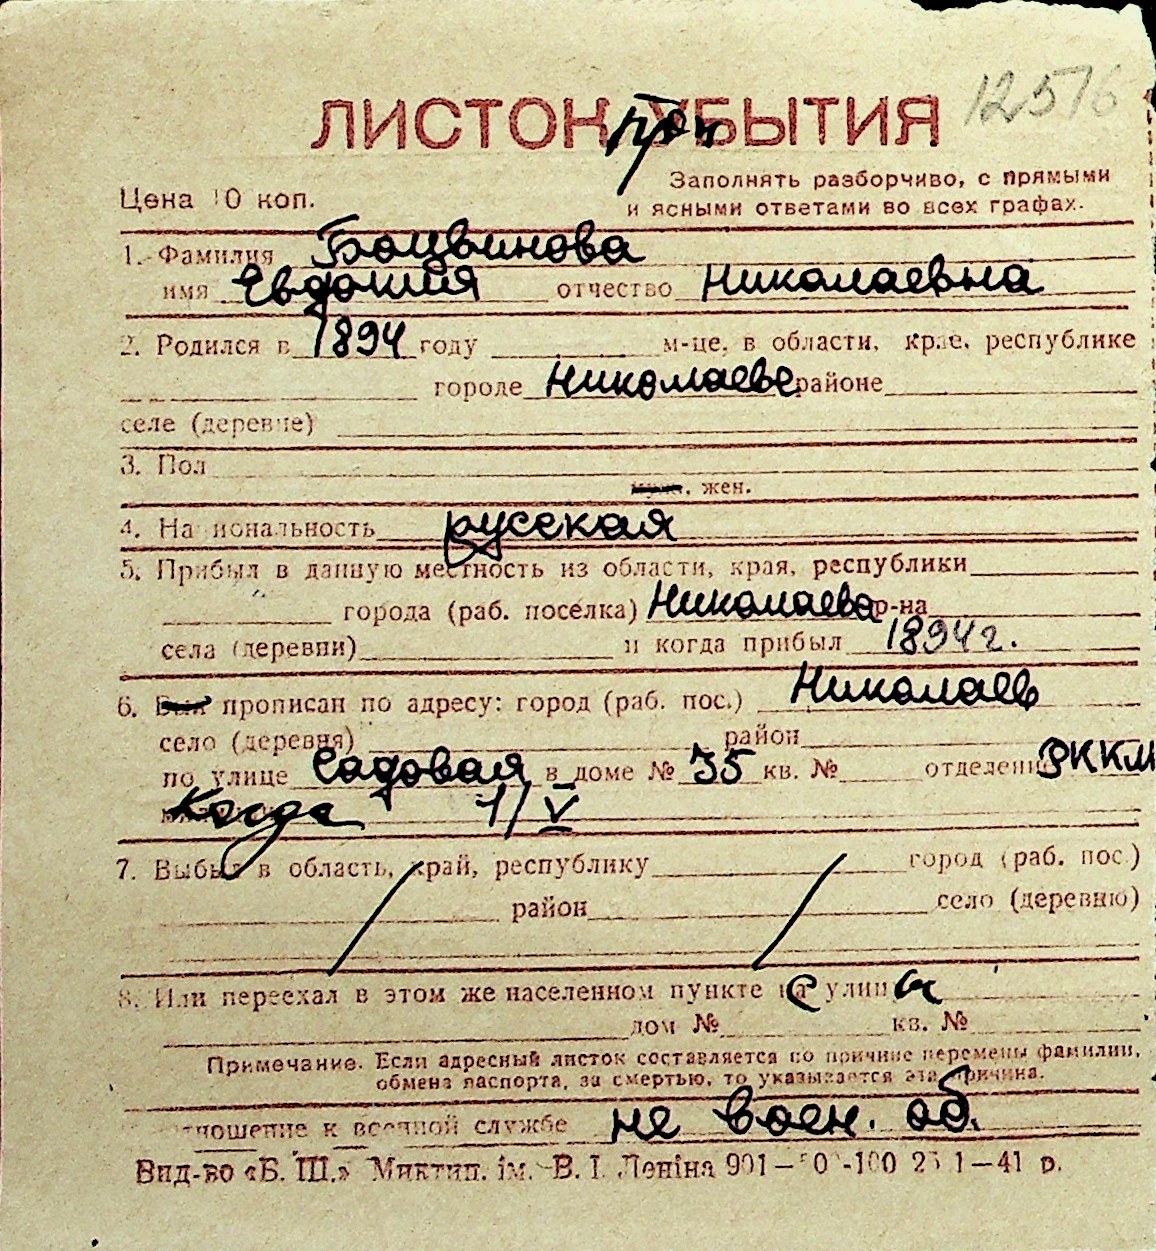 12576
ЛИСТОК УБЫТИЯ
Цена 10 коп.
Заполнять разборчиво, с прямыми
и ясными ответами во всех графах.
1. Фамилия Боцвинова
имя Евдокия отчество Николаевна
2. Родился в 1894 году м-це, в области, крае, республике
городе Николаеве районе
селе (деревне)
3. Пол
муж., жен.
4. Национальность русская
5. Прибыл в данную местность из области, края, республики
города (раб. поселка) Николаева р-на
села (деревни) и когда прибыл 1894 г.
6. Был прописан по адресу: город (раб. пос.) Николаев
село (деревня) район
по улице Садовая в доме № 35 кв. № отделение РККМ
Когда 1/V
7. Выбыл в область, край, республику город (раб. пос.)
район село (деревню)
8. Или переехал в этом же населенном пункте на улицу
дом № кв. №
Примечание. Если адресный листок составляется по причине перемены фамилии,
обмена паспорта, за смертью, то указывается эта причина.
Отношение к военной службе не воен. об.
Вид-во «Б. Ш.» Миктип. ім. В. І. Леніна 901